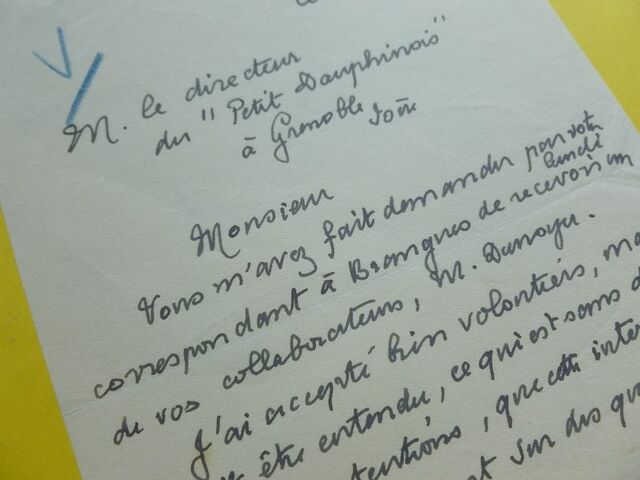 M. le directeur
du "Petit Dauphinois"
à Grenoble Isère
Monsieur
Vous m'avez fait demander par votre
correspondant à Brangues de recevoir lundi un
de vos collaborateurs, M. Danoyer.
J'ai accepté bien volontiers, ma
être entendu, ce qui est sans d
tentions, que cette inter
t sur des qu